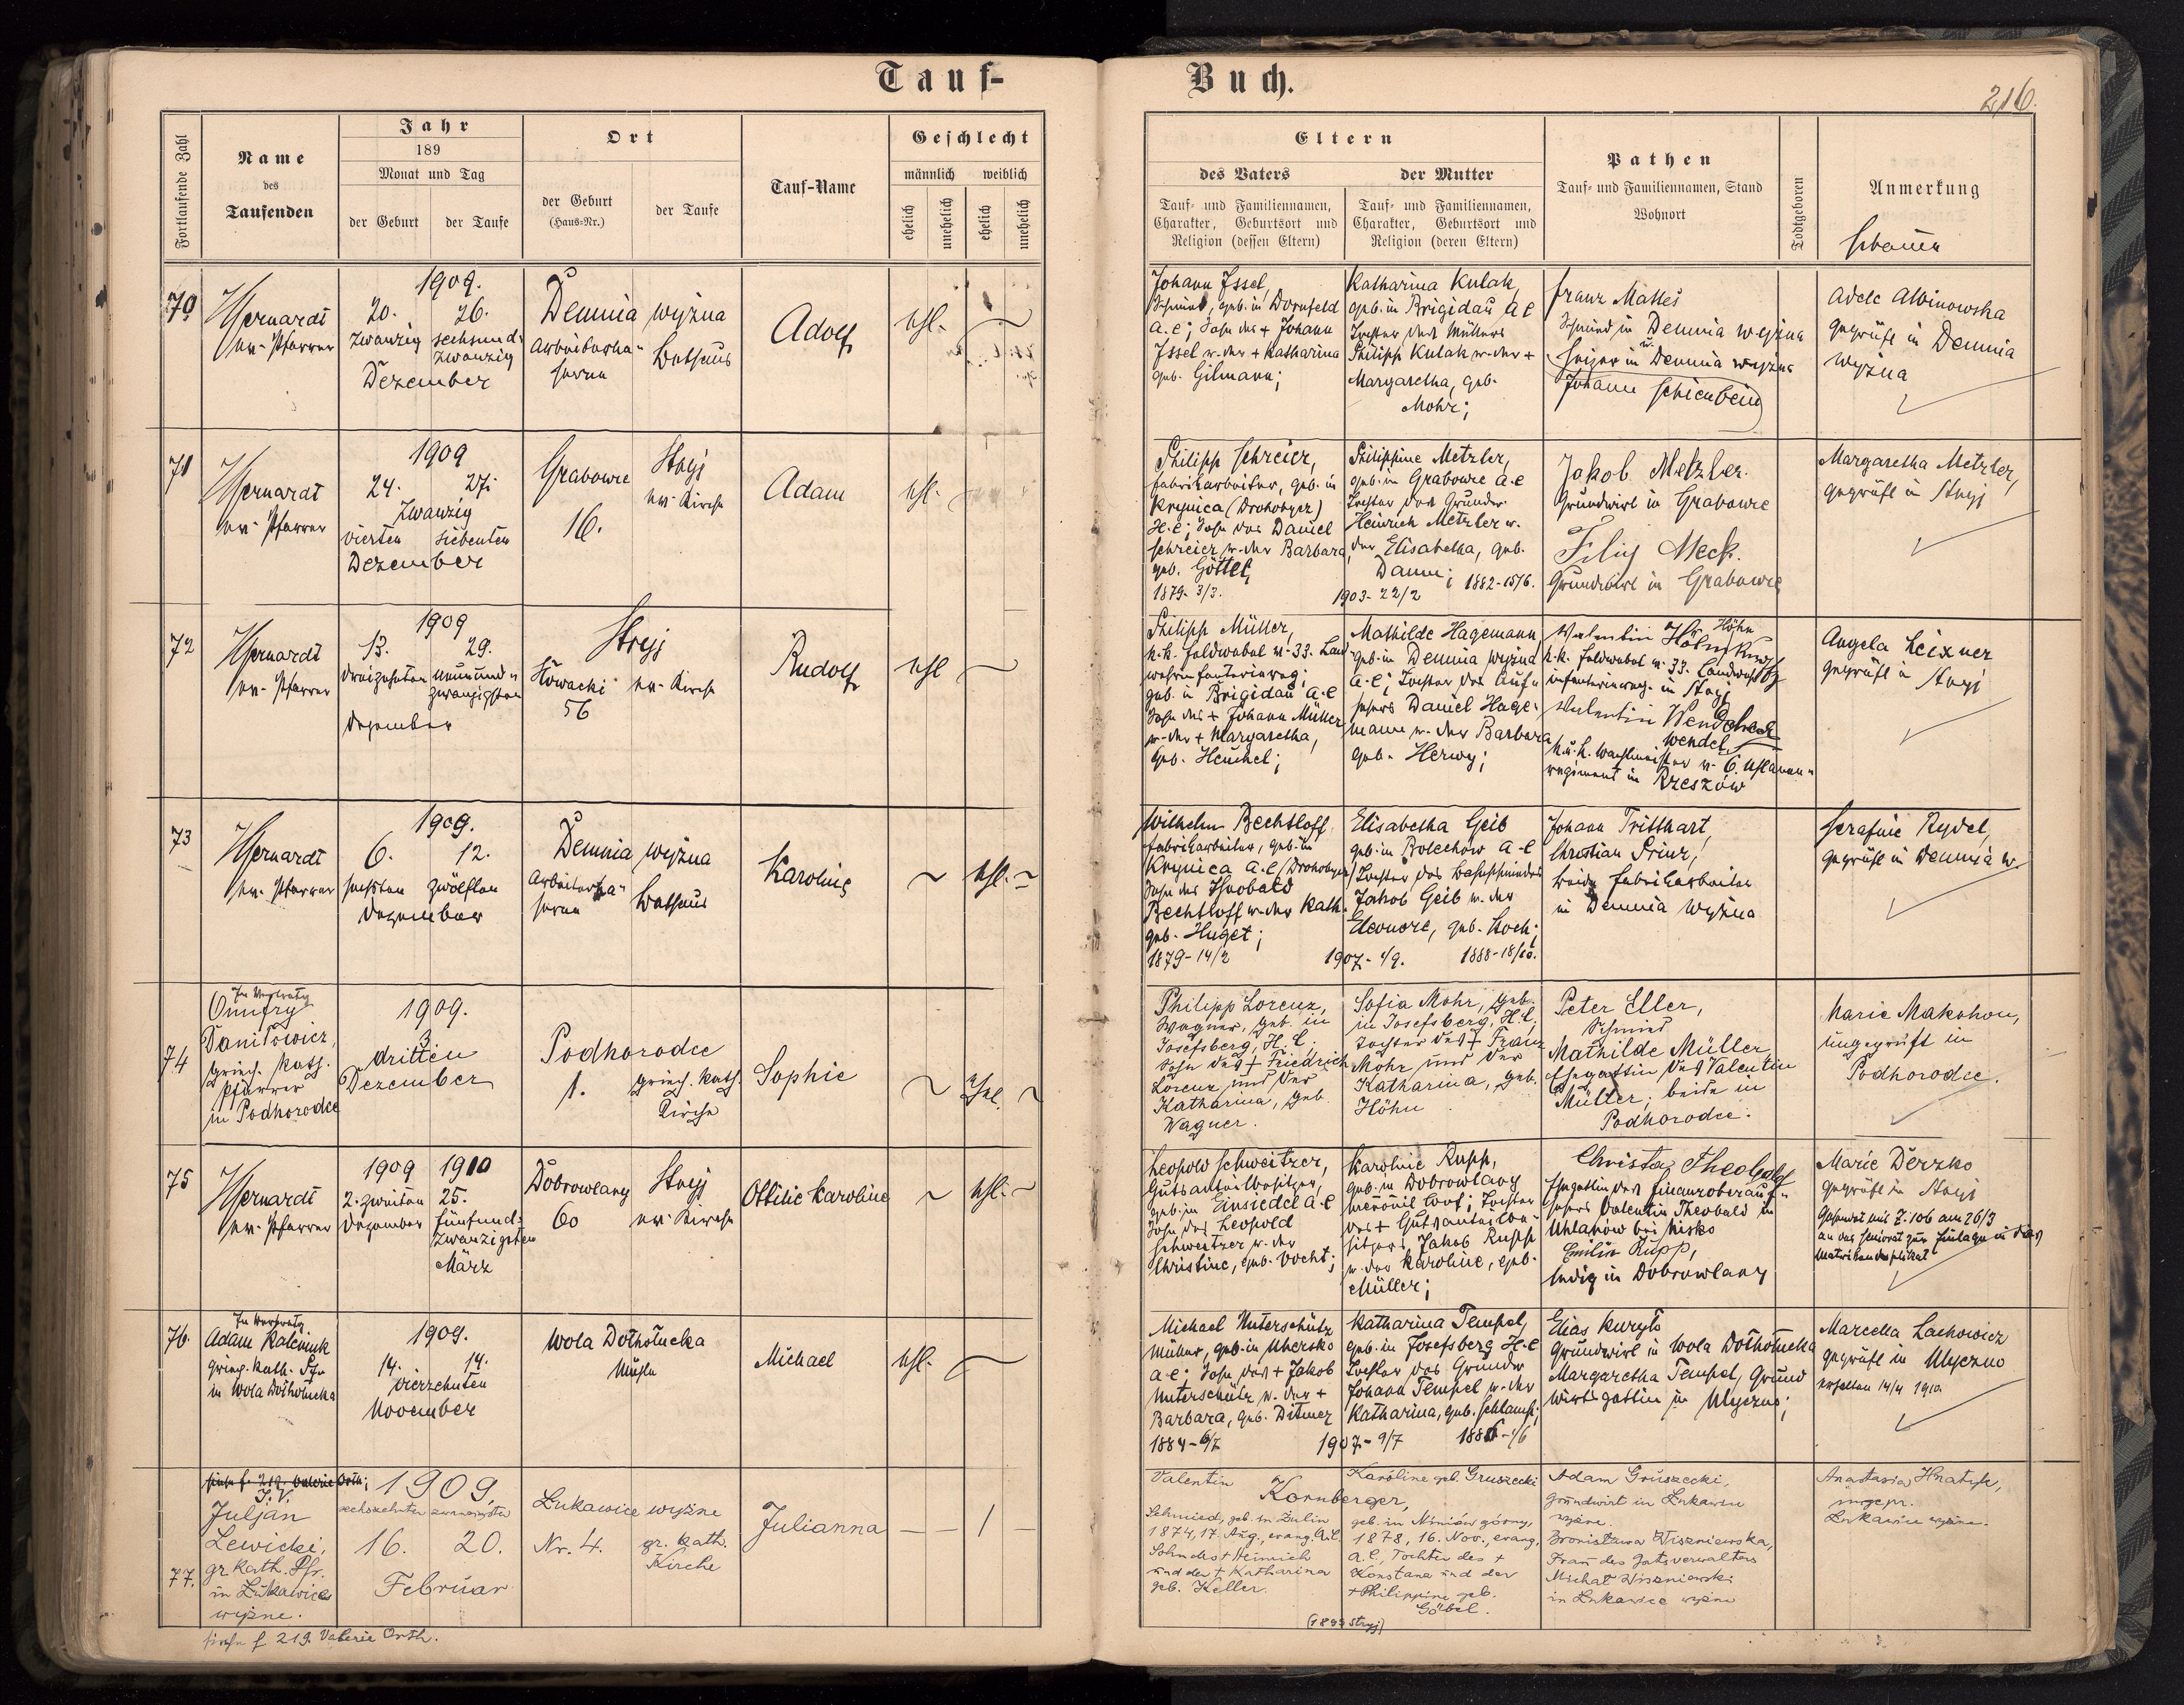 Tauf-
Buch.
216.
Fortlaufende Zahl
Name
des
Taufenden
Jahr
189
Monat und Tag
der Geburt
der Taufe
Ort
der Geburt
(Haus-Nr.)
der Taufe
Tauf-Name
Geschlecht
männlich
weiblich
ehelich
unehelich
ehelich
unehelich
Eltern
des Vaters
der Mutter
Tauf- und Familiennamen,
Charakter, Geburtsort und
Religion (dessen Eltern)
Tauf- und Familiennamen,
Charakter, Geburtsort und
Religion (deren Eltern)
Pathen
Tauf- und Familiennamen, Stand
Wohnort
Todtgeboren
Anmerkung
70
ev. Pfarrer
1909.
20. 26.
zwanzig sechsund-
zwanzig
Dezember
Demnia wyżna
Arbeiterka-
serne
Bethaus
Adolf
ehl.
Johann Issel,
Schmied, geb. in Dornfeld
A.C; Sohn des + Johann
Issel u. der + Katharina
geb. Gilmann;
Katharina Kulak,
geb. in Brigidau A C
Tochter des Müllers
Philipp Kulak u. der +
Margaretha, geb.
Mohr;
Franz Mattes
Schmied in Demnia wyżna
u.
Heizer in Demnia wyżna
Johann Schienbein
Adele Albinowska
geprüft in Demnia
wyżna
71
ev. Pfarrer
1909
24. 27.
Zwanzig
vierten siebenten
Dezember
Grabowce
16.
Stryj
ev. Kirche
Adam
ehl.
Philipp Schreier,
Fabrikarbeiter, geb. in
Krynica (Drohobycz)
H.C; Sohn des Daniel
Schreier u. der Barbara,
geb. Göttel;
1879- 3/3.
Philippine Metzler,
geb. in Grabowce A.C
Tochter des Grundw.
Heinrich Metzler u.
der Elisabetha, geb.
Damm; 1882-15/6.
1903-22/2
Jakob Metzler.
Grundwirt in Grabowce
Filip Meck.
Grundwirt in Grabowce
Margaretha Metzler,
geprüft in Stryj
72
ev. Pfarrer
1909
13. 29.
dreizehnten neunund-
zwanzigsten
Dezember
Stryj
56
ev. Kirche
Rudolf
ehl
Philipp Müller,
k.k. Feldwebel v. 33. Land-
geb. in Brigidau A.C
Sohn des + Johann Müller
u. der + Margaretha,
geb. Heuchel;
Mathilde Hagemann
geb. in Demnia wyżna
A.C; Tochter des Auf-
sehers Daniel Hage-
mann u. der Barbara
geb. Herwy;
Valentin
Höhn
k.k. Feldwebel v. 33. Landwehr
in Stryj
Valentin
Wendel
k.u.k. Wachtmeister v. 6. Uhlanen-
regiment in Rzeszów
Angela Leixner
geprüft in Stryj
73
ev. Pfarrer
1909.
6. 12.
sechsten zwölften
Dezember
Demnia wyżna
Arbeiterka-
serne
Bethaus
Karoline
ehl.
Wilhelm Bechtloff
Fabrikarbeiter, geb. in
Krynica A.C (Drohobycz)
Sohn des Theobald
Bechtloff u. der Kath.
geb. Huget;
1879-14/2
Elisabetha Geib
geb. in Bolechow A-C
Jakob Geib u. der
Eleonore, geb. Koch;
1907-1/9. 1888-18/10.
Johann Tritthart,
Christian Prinz,
beide Fabrikarbeiter
in Demnia wyżna
Serafine Rydel,
geprüft in Demnia w.
74
In Vertretg
Onufry
Daniłowicz,
griech. kath.
Pfarrer
in Podhorodce
1909.
3
dritten
6
Dezember
Podhorodce
1.
griech. kath.
Kirche
Sophie
ehl.
Philipp Lorenz,
Wagner, geb. in
Josefsberg, H.C;
Sohn des + Friedrich
Lorenz und der
Katharina, geb.
Wagner.
Sofia Mohr, geb.
in Josefsberg, H.C,
Tochter des + Franz
Mohr und der
Katharina, geb.
Höhn
Peter Eller,
Schmied
Mathilde Müller,
Ehegattin des Valentin
Müller; beide in
Podhorodce.
Marie Makohon,
ungeprüft in
Podhorodce.
75
ev. Pfarrer
1909 1910
2. zweiten 25.
Dezember fünfund-
zwanzigsten
März
Dobrowlany
60
Stryj
ev. Kirche
Ottilie Karoline
ehl.
Leopold Schweitzer,
Gutsanteilbesitzer,
geb. in Einsiedel A-C
Sohn des Leopold
Schweitzer u. der
Christine, geb. Vocht;
Karoline Rupp,
geb. in Dobrowlany
des + Gutsanteilbe-
sitzers Jakob Rupp
u. der Karoline, geb.
Müller;
Christa Theobald
Ehegattin des Finanzoberauf-
sehers Valentin Theobald in
Uhlanów bei Nisko
Emilie Rupp,
ledig in Dobrowlany
Marie Derzko
geprüft in Stryj
Gesendet mit Z. 106 am 26/3
an das Seniorat zur Einlage in das
Matrikenduplikat
76.
In Vertretg
Adam Kalciuk
griech. kath. Pfr
in Wola Dołhołucka
1909.
14. 14.
vierzehnten
November
Wola Dołhołucka
Mühle
Michael
ehl.
Michael Unterschütz
Müller, geb. in Uhersko
A-C; Sohn des + Jakob
Unterschütz u. der +
Barbara, geb. Ditmer
1884-6/7
Katharina Tempel,
geb. in Josefsberg H-C
Tochter des Grundw
Johann Tempel u. der
Katharina, geb. Schlamp;
1907-9/7 1886-1/6
Elias Kuryto
Grundwirt in Wola Dołhołucka
Margaretha Tempel, Grund
wirtsgattin in Ulyczno;
Marcella Lachowicz
geprüft in Ulyczno
erhalten 14/4 1910.
siehe f. 219. Valerie Orth;
77.
I. V.
Juljan
Lewicki,
gr. kath. Pfr.
in Łukawice
wyżne.
1909,
sechszehnten zwanzigsten
16. 20.
Februar
Łukawice wyżne
Nr. 4.
gr. kath.
Kirche
Julianna
— — / —
Valentin
Kornberger,
Schmied, geb. in Zulin
1874, 17. Aug., evang. A.C.
Sohn des + Heinrich
und der + Katharina
geb. Keller.
Karoline geb. Gruszecki
geb. in Mriniów górny,
1878, 16. Nov., evang.
A.C., Tochter des +
Konstanz und der
+ Philippine geb.
Göbel.
(1899 Stryj)
Adam Gruszecki,
Grundwirt in Łukawice
wyżne.
Bronisława Wiszniewska,
Frau des Gutsverwalters
Michał Wiszniewski
in Łukawice wyżne
Anastasia Hnatyk,
ungepr.
Łukawice wyżne.
siehe f. 219. Valerie Orth.